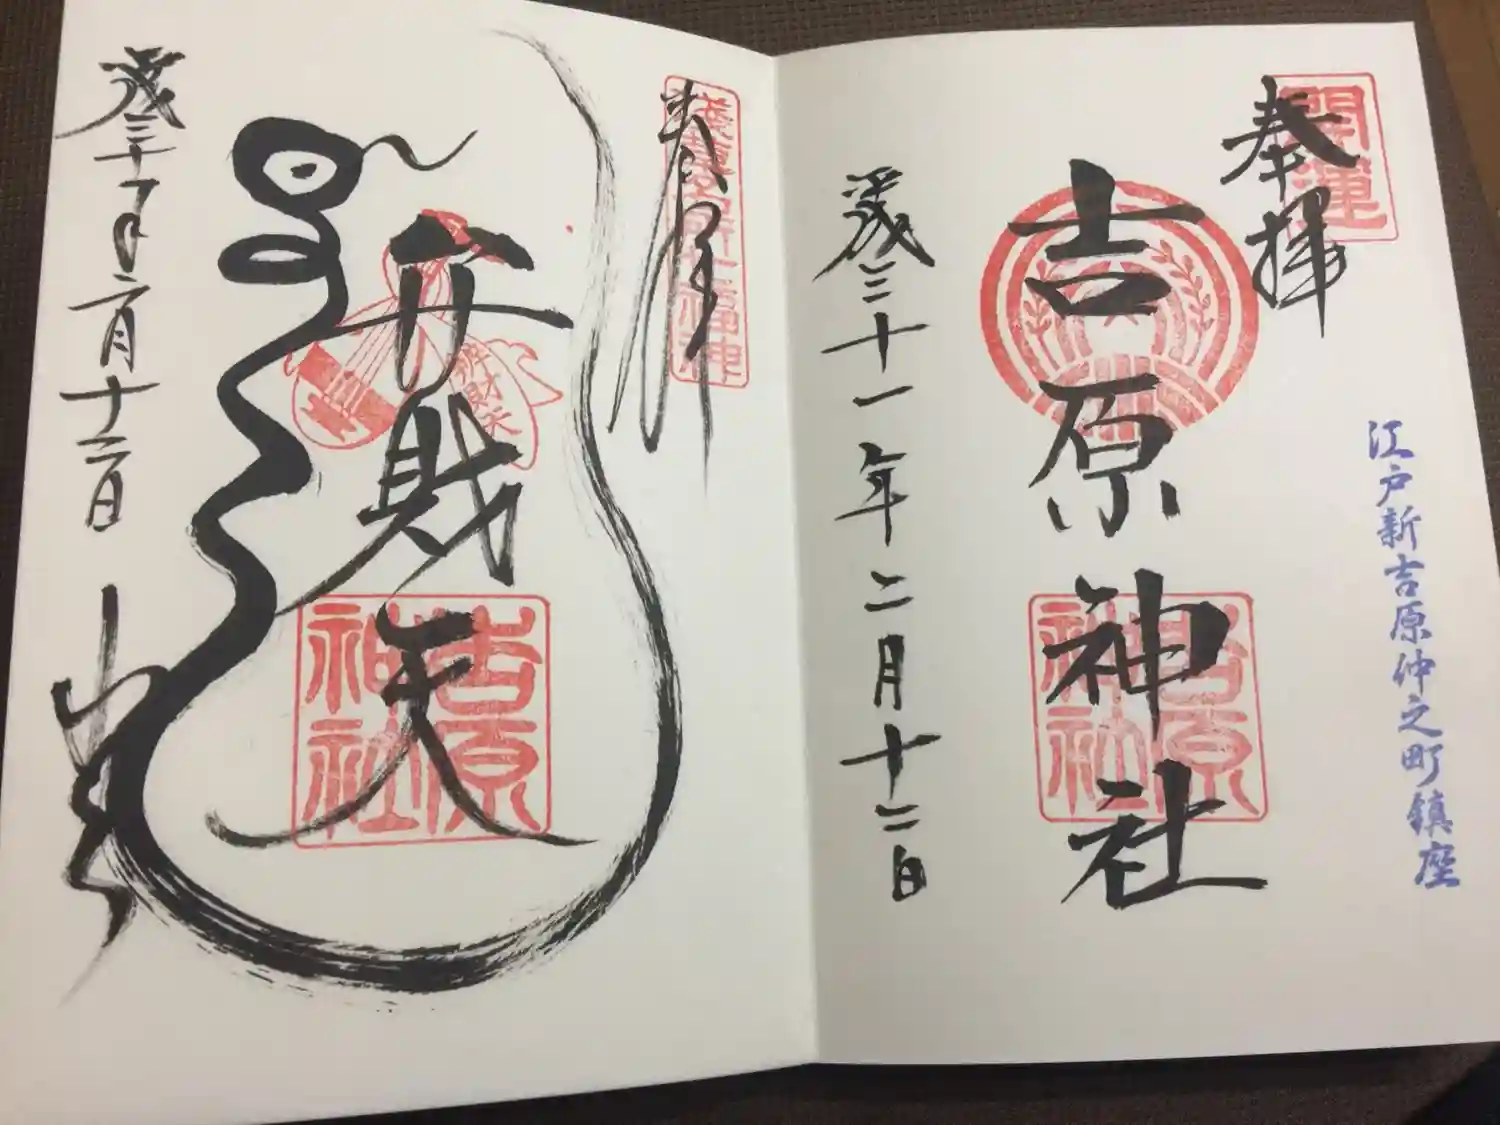 開運
奉拝
江戸新吉原仲之町鎮座
吉原神社
吉原神社
歳三十一年二月十二日
浅草名所七福神
奉拝
弁財天
弁財天
吉原神社
歳三十一年二月十二日